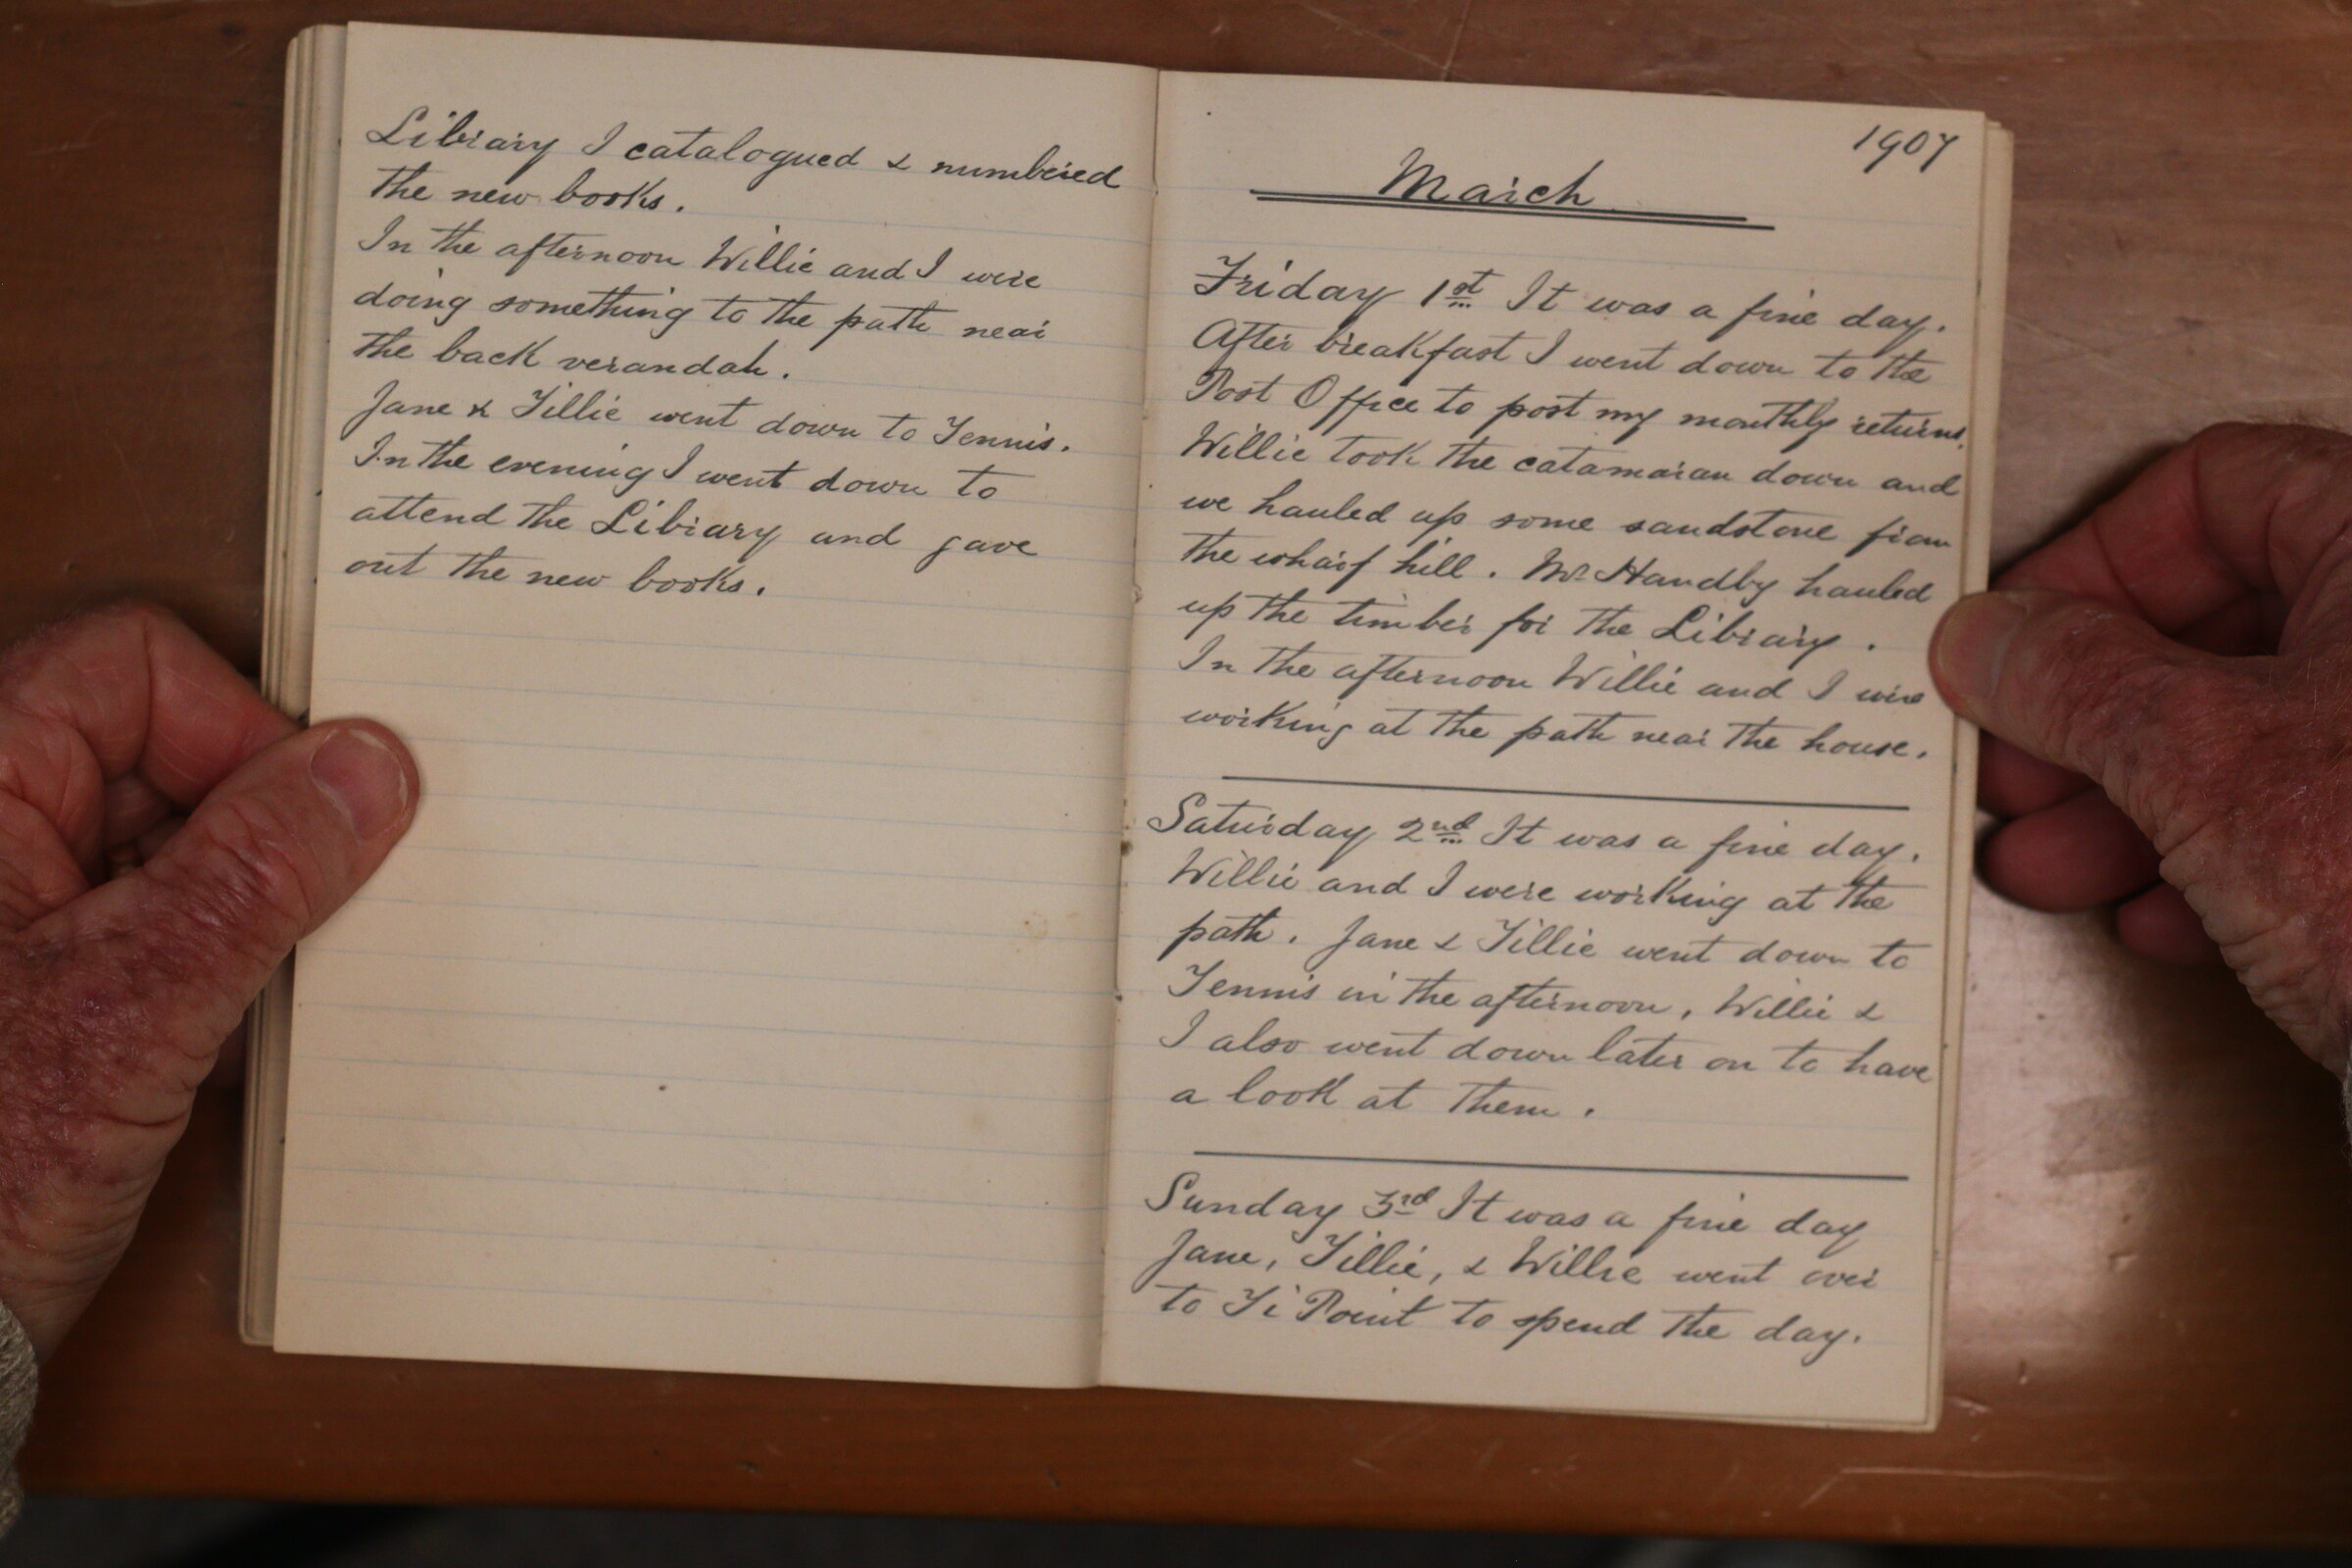 Library I catalogued & numbered
the new books.
In the afternoon Willie and I were
doing something to the path near
the back verandah.
Jane & Tillie went down to Tennis.
In the evening I went down to
attend the Library and gave
out the new books.
1907
March
Friday 1st It was a fine day.
After breakfast I went down to the
Post Office to post my monthly returns.
Willie took the catamaran down and
we hauled up some sandstone from
the wharf hill. Mr Handby hauled
up the timber for the Library.
In the afternoon Willie and I were
working at the path near the house.
Saturday 2nd It was a fine day.
Willie and I were working at the
path. Jane & Tillie went down to
Tennis in the afternoon, Willie &
I also went down later on to have
a look at them.
Sunday 3rd It was a fine day
Jane, Tillie, & Willie went over
to Ti Point to spend the day.